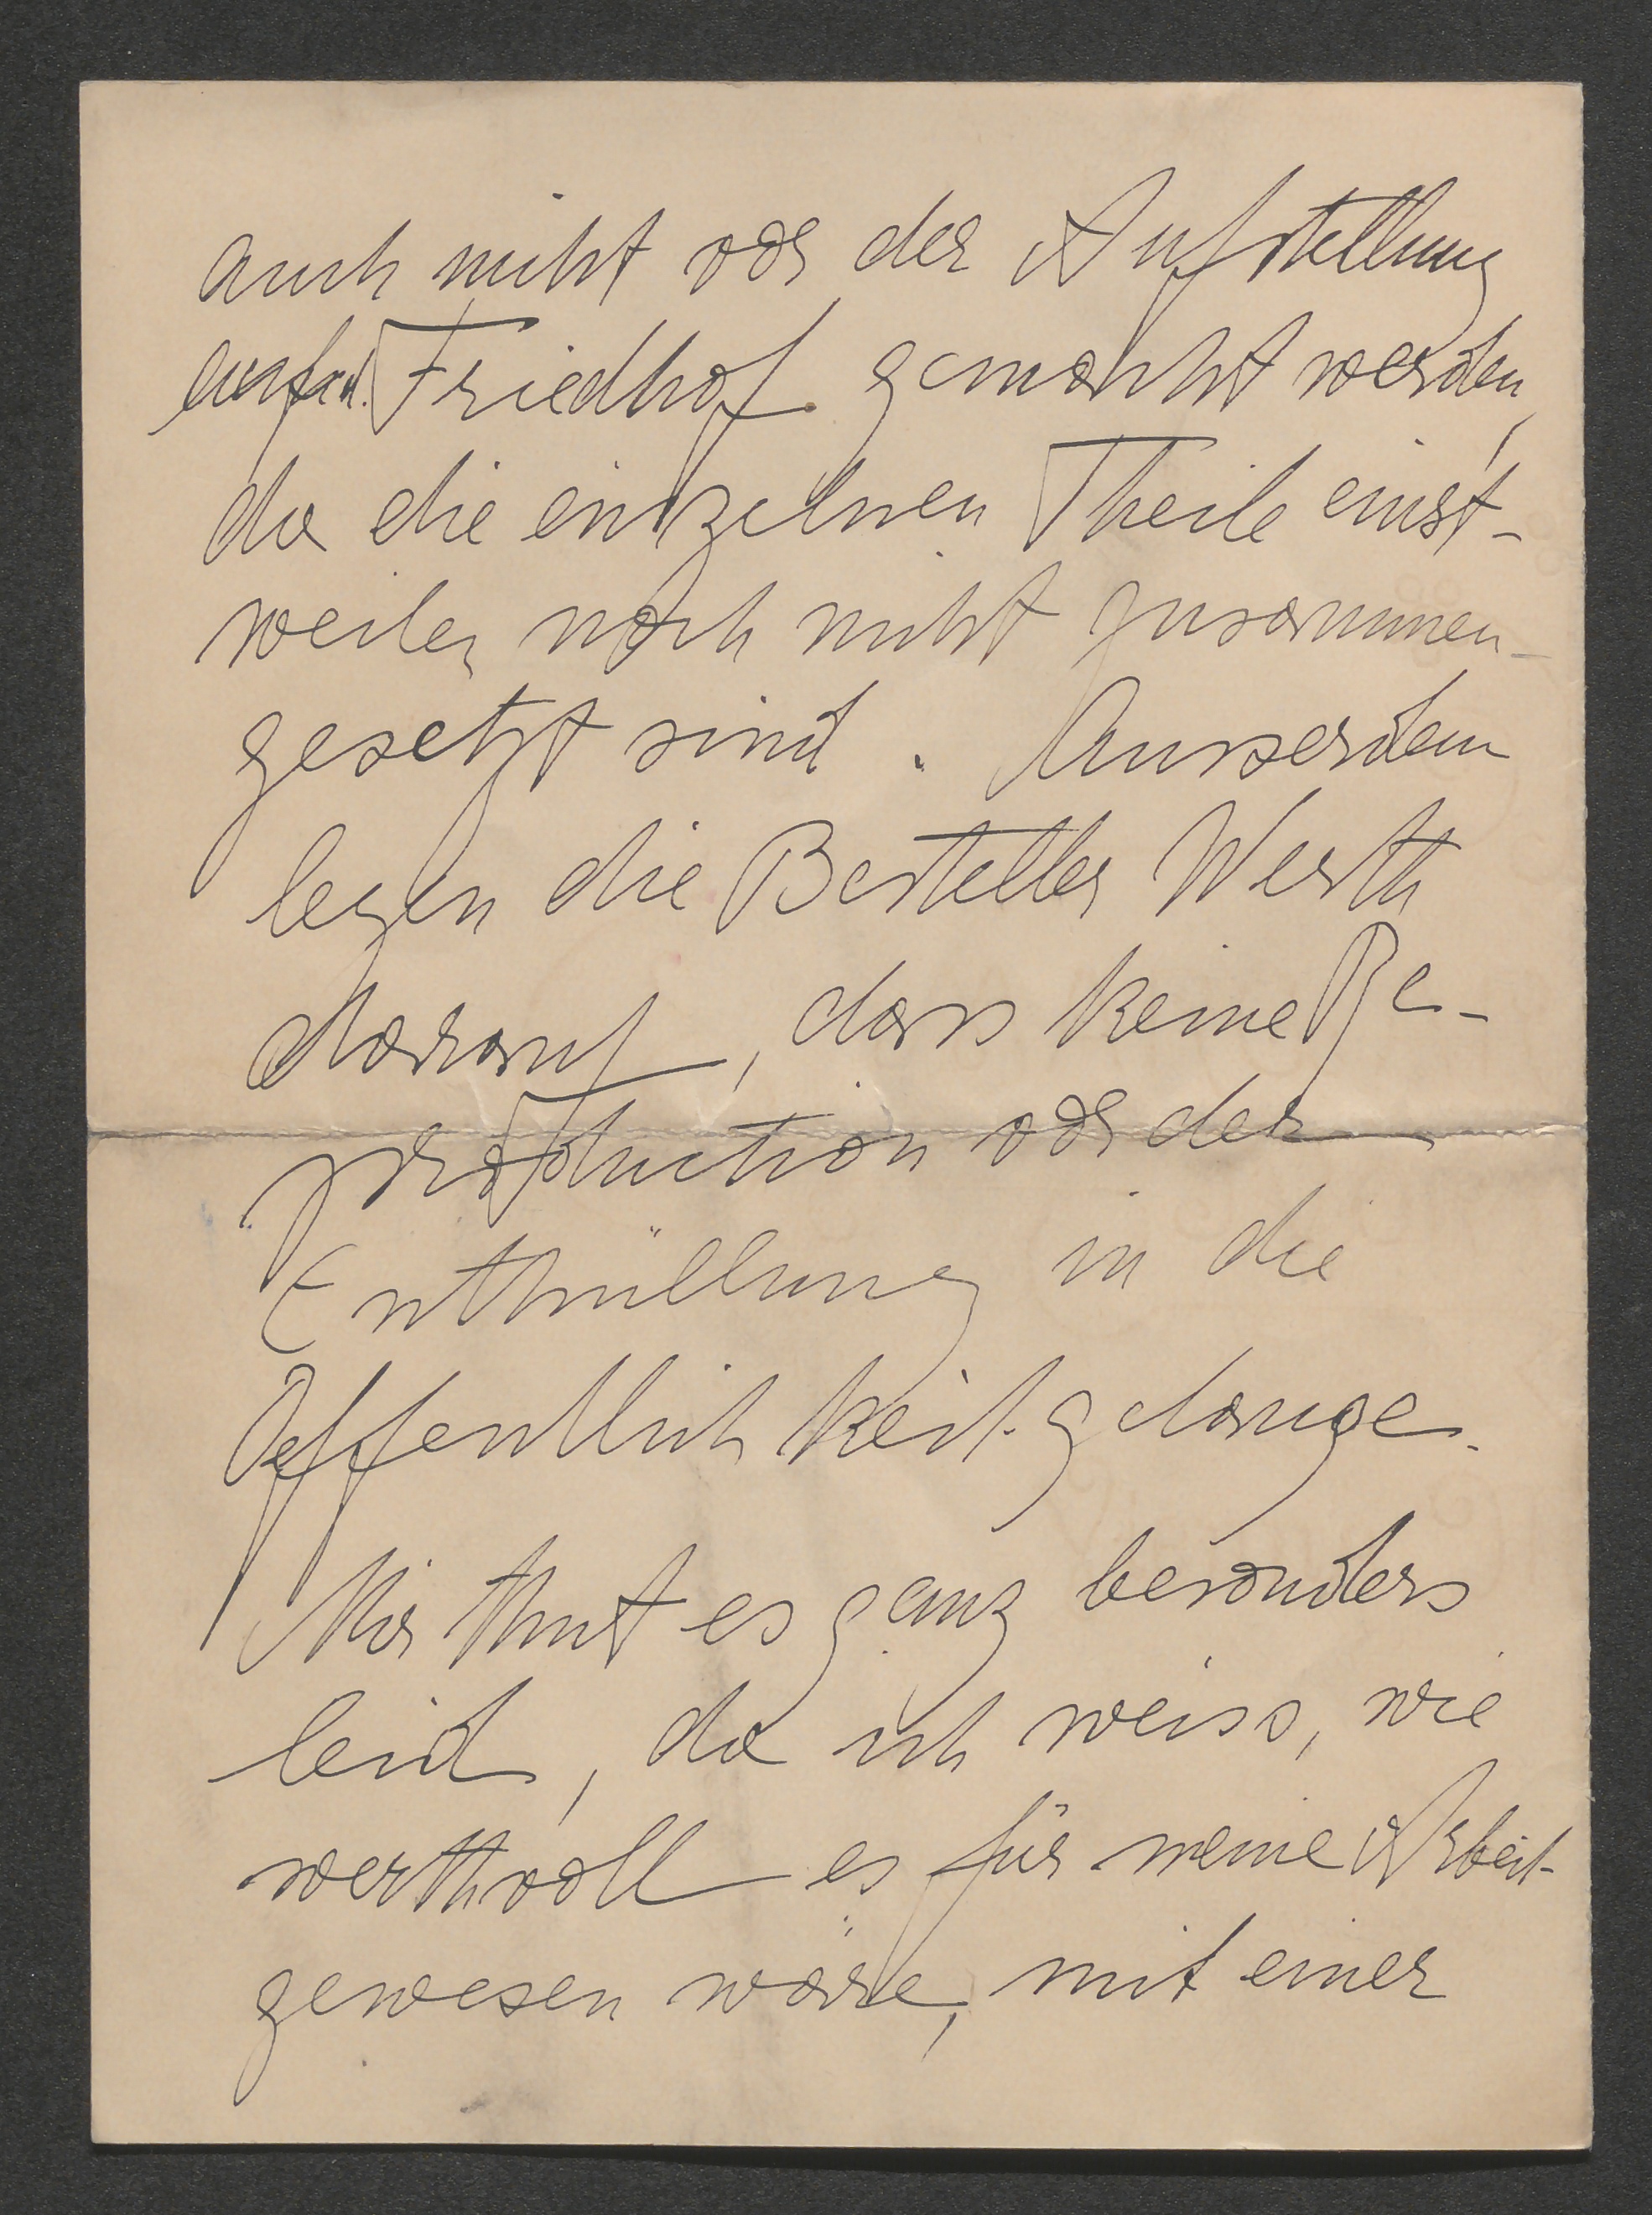 auch nicht vor der Aufstellung
auf d. Friedhof gemacht werden,
da die einzelnen Theile einst-
weilen noch nicht zusammen-
gesetzt sind. Ausserdem
legen die Besteller Werth
darauf, dass keine Re-
production vor der
Enthüllung in die
Oeffentlichkeit gelange.
Mir thut es ganz besonders
leid, da ich weiss, wie
werthvoll es für meine Arbeit
gewesen wäre, mit einer